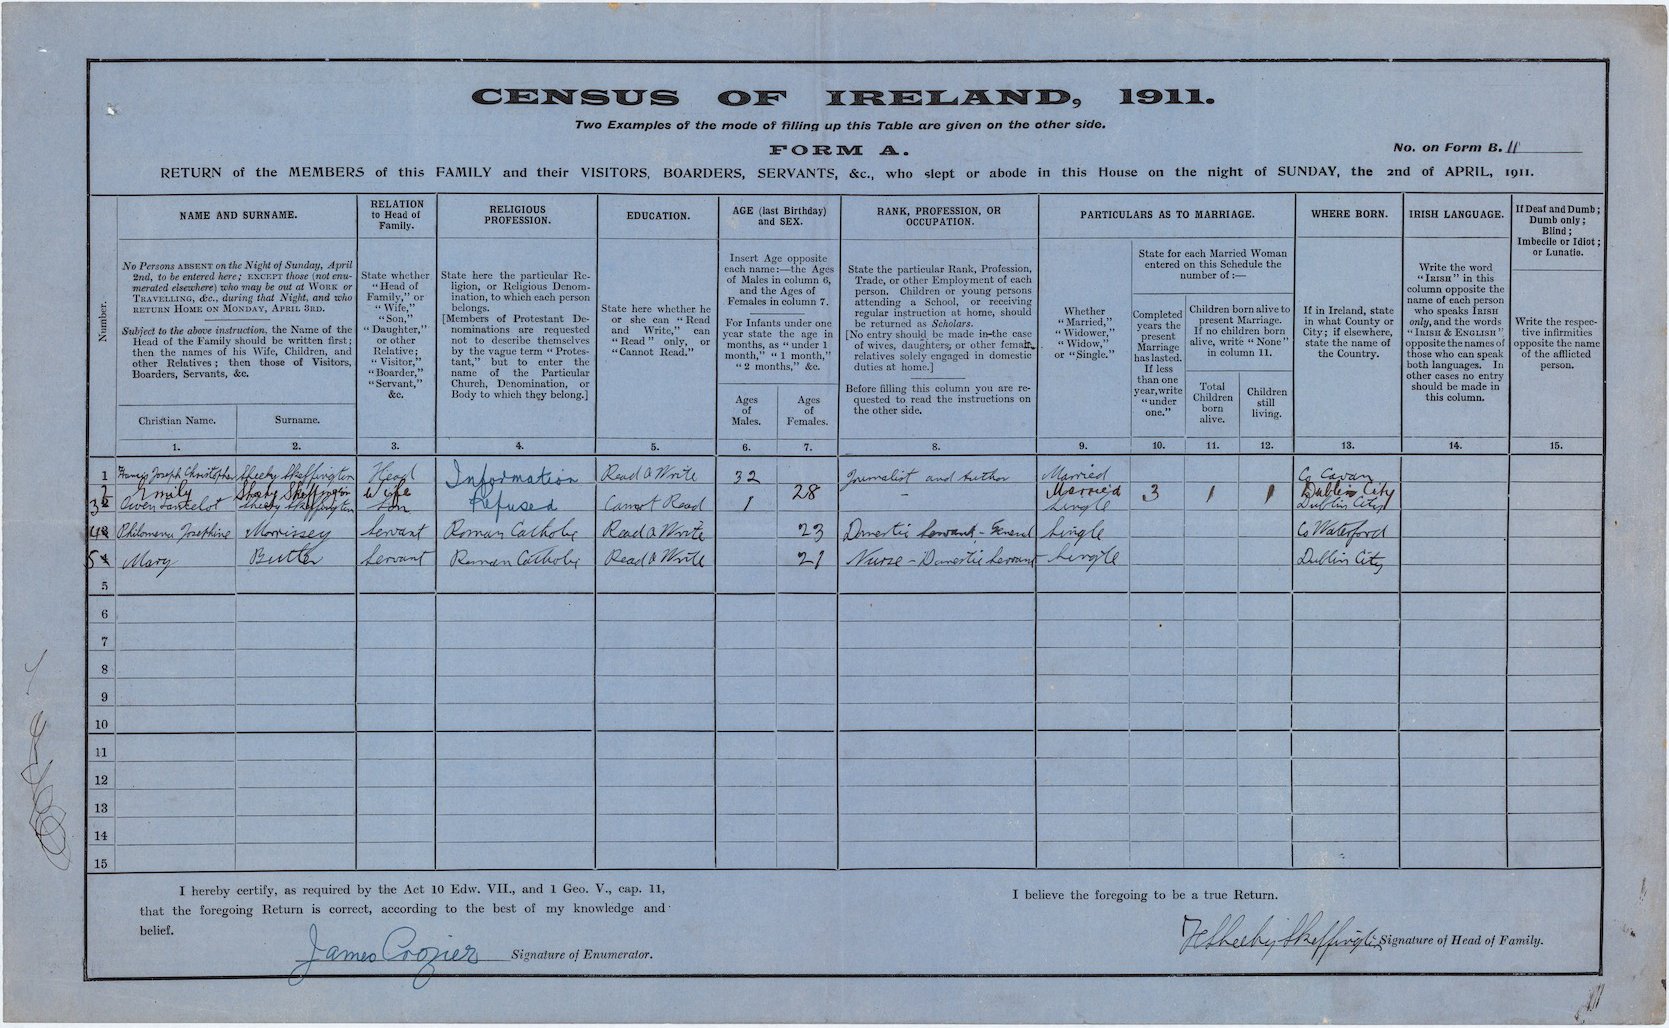 CENSUS OF IRELAND, 1911.
Two Examples of the mode of filling up this Table are given on the other side.
FORM A.
No. on Form B. 11
RETURN of the MEMBERS of this FAMILY and their VISITORS, BOARDERS, SERVANTS, &c., who slept or abode in this House on the night of SUNDAY, the 2nd of APRIL, 1911.
Number.
NAME AND SURNAME.
No Persons ABSENT on the Night of Sunday, April
2nd, to be entered here; EXCEPT those (not enu-
merated elsewhere) who may be out at WORK or
TRAVELLING, &c., during that Night, and who
RETURN HOME ON MONDAY, APRIL 3RD.
Subject to the above instruction, the Name of the
Head of the Family should be written first;
then the names of his Wife, Children, and
other Relatives; then those of Visitors,
Boarders, Servants, &c.
Christian Name.
Surname.
RELATION
to Head of
Family.
State whether
"Head of
Family," or
"Wife,"
"Son,"
"Daughter,"
or other
Relative;
"Visitor,"
"Boarder,"
"Servant,"
&c.
RELIGIOUS
PROFESSION.
State here the particular Re-
ligion, or Religious Denom-
ination, to which each person
belongs.
[Members of Protestant De-
nominations are requested
not to describe themselves
by the vague term "Protes-
tant," but to enter the
name of the Particular
Church, Denomination, or
Body to which they belong.]
EDUCATION.
State here whether he
or she can "Read
and Write," can
"Read" only, or
"Cannot Read."
AGE (last Birthday)
and SEX.
Insert Age opposite
each name:—the Ages
of Males in column 6,
and the Ages of
Females in column 7.
For Infants under one
year state the age in
months, as "under 1
month," "1 month,"
"2 months," &c.
Ages
of
Males.
Ages
of
Females.
RANK, PROFESSION, OR
OCCUPATION.
State the particular Rank, Profession,
Trade, or other Employment of each
person. Children or young persons
attending a School, or receiving
regular instruction at home, should
be returned as Scholars.
[No entry should be made in the case
of wives, daughters, or other female
relatives solely engaged in domestic
duties at home.]
Before filling this column you are re-
quested to read the instructions on
the other side.
PARTICULARS AS TO MARRIAGE.
Whether
"Married,"
"Widower,"
"Widow,"
or "Single."
State for each Married Woman
entered on this Schedule the
number of:—
Completed
years the
present
Marriage
has lasted.
If less
than one
year, write
"under
one."
Children born alive to
present Marriage.
If no children born
alive, write "None"
in column 11.
Total
Children
born
alive.
Children
still
living.
WHERE BORN.
If in Ireland, state
in what County or
City; if elsewhere,
state the name of
the Country.
IRISH LANGUAGE.
Write the word
"IRISH" in this
column opposite the
name of each person
who speaks IRISH
only, and the words
"IRISH & ENGLISH"
opposite the names of
those who can speak
both languages. In
other cases no entry
should be made in
this column.
If Deaf and Dumb;
Dumb only;
Blind;
Imbecile or Idiot;
or Lunatic.
Write the respec-
tive infirmities
opposite the name
of the afflicted
person.
1. 2. 3. 4. 5. 6. 7. 8. 9. 10. 11. 12. 13. 14. 15.
1 Francis Joseph Christopher Sheehy Skeffington Head Information Read & Write 32 Journalist and Author Married Co Cavan
2 Emily Sheehy Skeffington Wife 28 - Married 3 1 1 Dublin City
3 Owen Lancelot Sheehy Skeffington Son Refused Cannot Read 1 Single Dublin City
4 Philomena Josephine Morrissey Servant Roman Catholic Read & Write 23 Domestic Servant - General Single Co Waterford
5 Mary Butler Servant Roman Catholic Read & Write 21 Nurse - Domestic Servant Single Dublin City
5
6
7
8
9
10
11
12
13
14
15
I hereby certify, as required by the Act 10 Edw. VII., and 1 Geo. V., cap. 11,
that the foregoing Return is correct, according to the best of my knowledge and
belief.
James Crozier Signature of Enumerator.
I believe the foregoing to be a true Return.
F Sheehy Skeffington Signature of Head of Family.